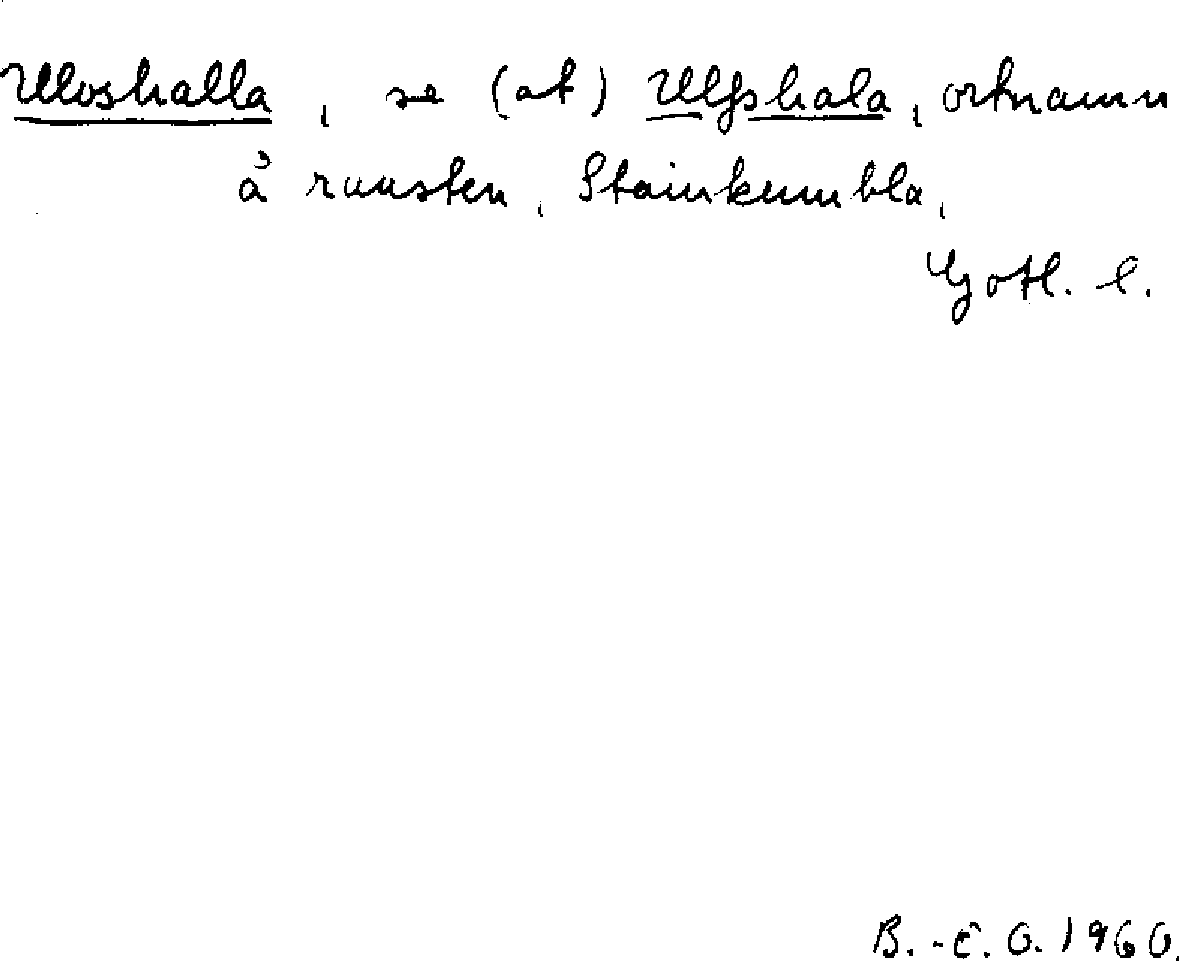 Uloshalla, se (at) Ulfshala, ortnamn
å runsten, Stainkumbla,
Gotl. l.
B.-C. O. 1960.